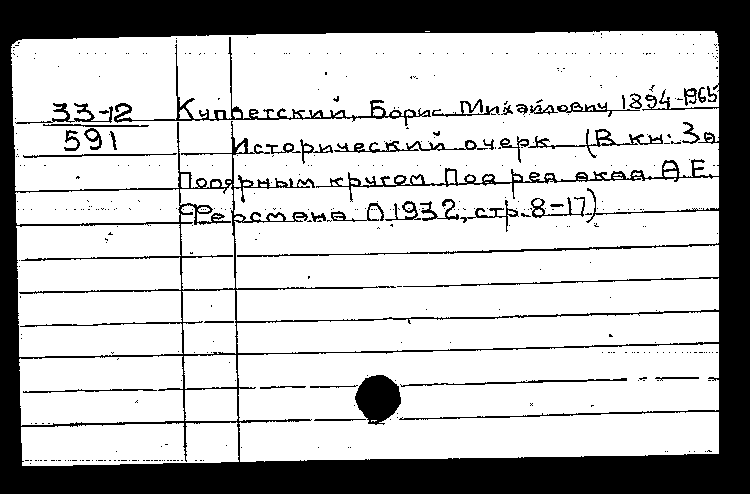 33-12
591
Куплетский, Борис Михайлович, 1894-1965
Исторический очерк. (В кн: За
Полярным кругом. Под ред. акад. А.Е.
Ферсмана. Л. 1932, стр. 8-17)